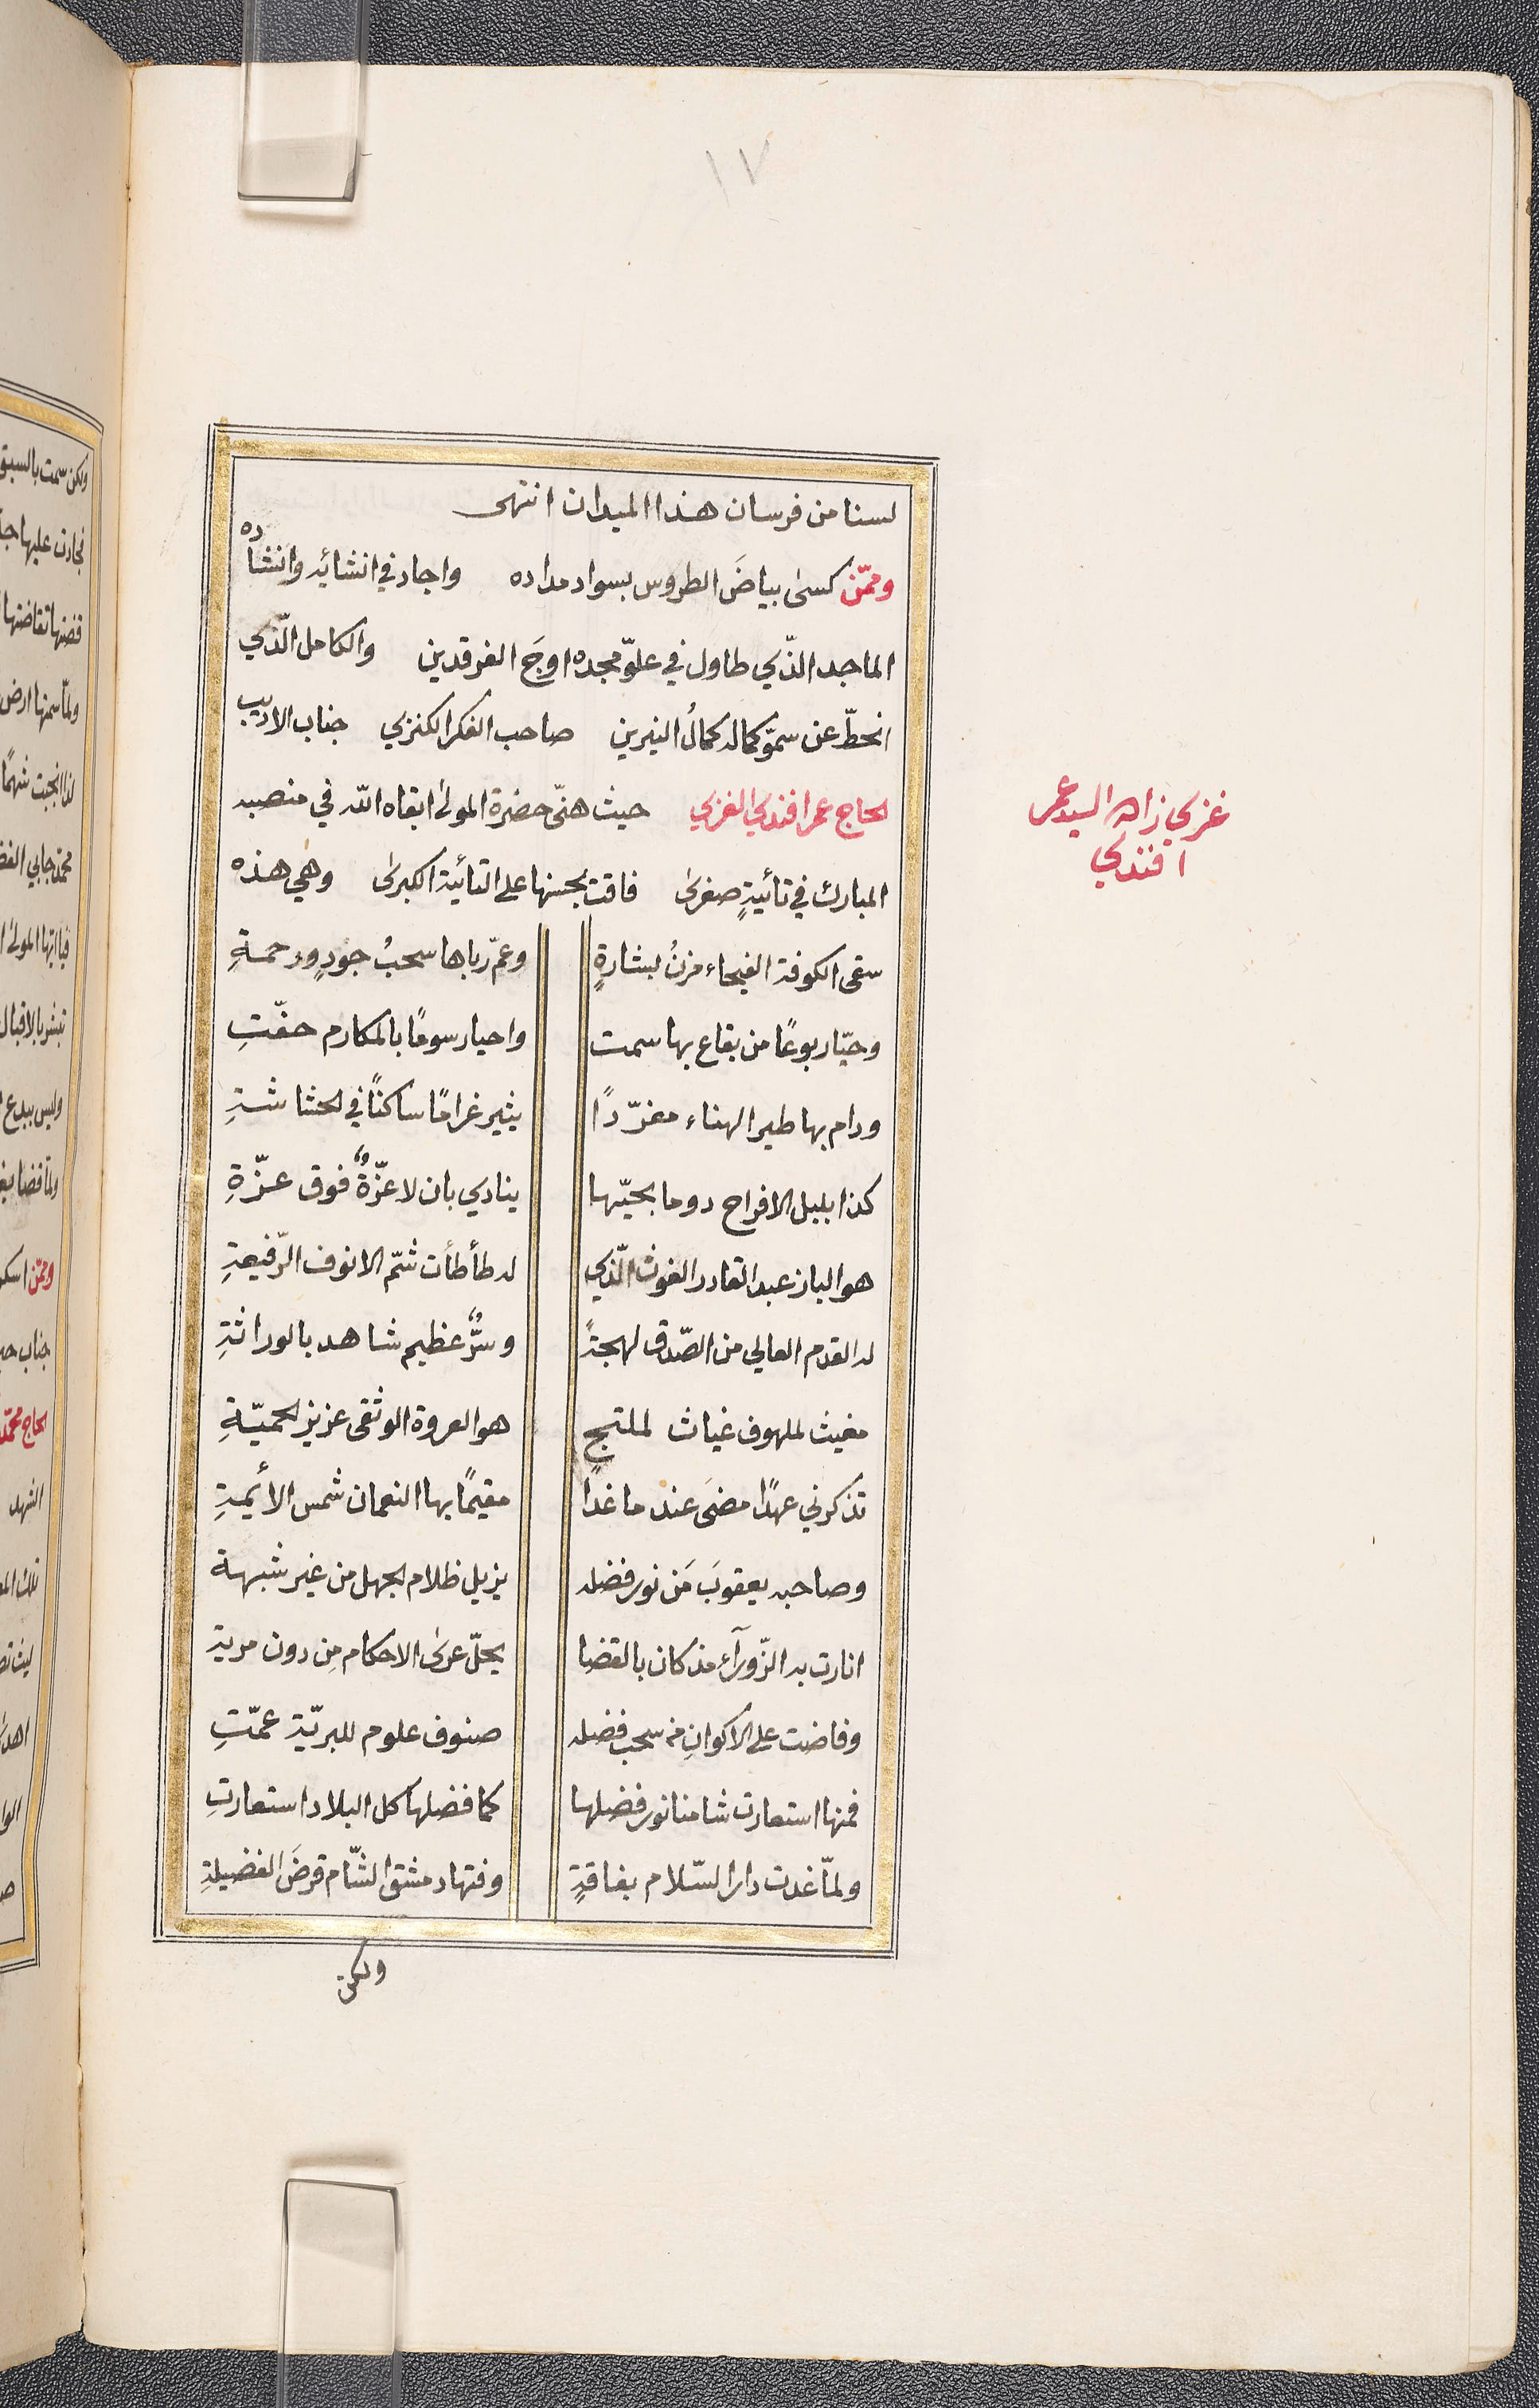 ١٧
لسنا من فرسان هذا الميدان انتهى
وممّن كسى بياضَ الطروس بسواد مداده واجاد في انشائه وانشاده
الماجد الذّي طاول في علوّ مجده اوجَ الفرقدين والكامل الّذي
انحطّ عن سموّ كماله كمالُ النيرين صاحب الفكر الكنزي جناب الاديب
الحاج عمر افندي الغزي حيث هنّى حضرة المولى ابقاه الله في منصبه
المبارك في تائيةٍ صغرى فاقت بحسنها على التائية الكبرى وهي هذه
غزي زاده السيد عمر
افندي
سقى الكوفة الفيحاء مزنُ بشارةٍ وعمّ رباها سحبُ جودٍ ورحمةِ
وحيّا ربوعًا من بقاع بها سمت واحيا رسومًا بالمكارم حفّتِ
ودام بها طير الهناء مغرّدًا يثير غرامًا ساكنًا في الحشاشةِ
كذا بلبل الافراح دوما بحيّها ينادي بان لا عزّةٌ فوق عزّةِ
هو الباز عبد القادر الغوث الّذي له طأطأت شمّ الانوف الرّفيعةِ
له القدم العالي من الصّدق لهجةً وسرٌّ عظيم شاهد بالوراثةِ
مغيث لملهوف غياث لملتجٍ هو العروة الوثقى عزيز الحميّةِ
تذكرني عهدًا مضَى عند ما غدا مقيمًا بها النعمان شمس الأئمةِ
وصاحبه يعقوبَ مَن نور فضله يزيل ظلام الجهل من غير شبهة
انارت به الزّورآء مذ كان بالقضا يحلّ عرى الاحكام مِن دون مرية
وفاضت على الاكوانِ من سحب فضله صنوف علوم للبريّة عمّتِ
فمنها استعارت شامنا نور فضلها كما فضلها كل البلاد استعارتِ
ولمّا غدت دار السّلام بفاقةٍ وفتها دمشق الشّام قرضَ الفضيلةِ
ولكن